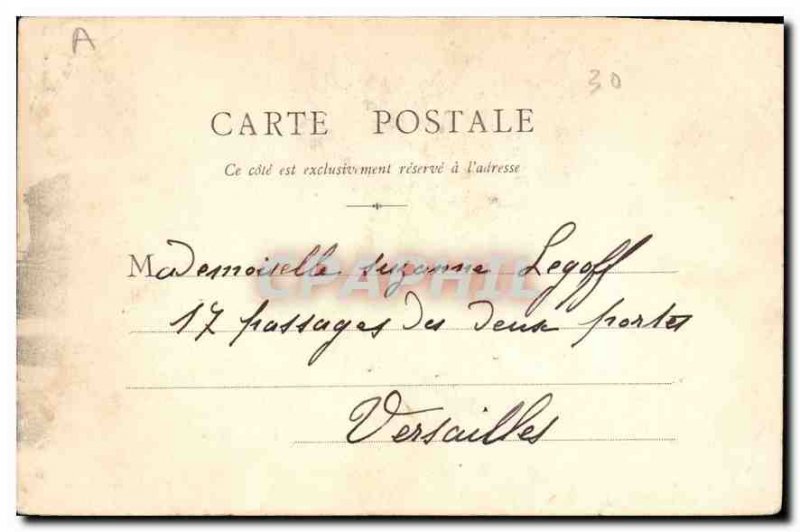 A
30
CARTE POSTALE
Ce côté est exclusivement réservé à l'adresse
Mademoiselle suzanne Legoff
CPAPHIL
17 passages des deux portes
Versailles